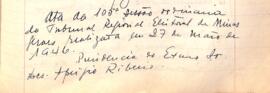 Ata da 105ª sessão ordinaria
do Tribunal Regional Eleitoral de Minas
Geraes, realizada em 27 de maio de
1946.
Presidencia do Exmo. Sr.
Des. Aprigio Ribeiro.